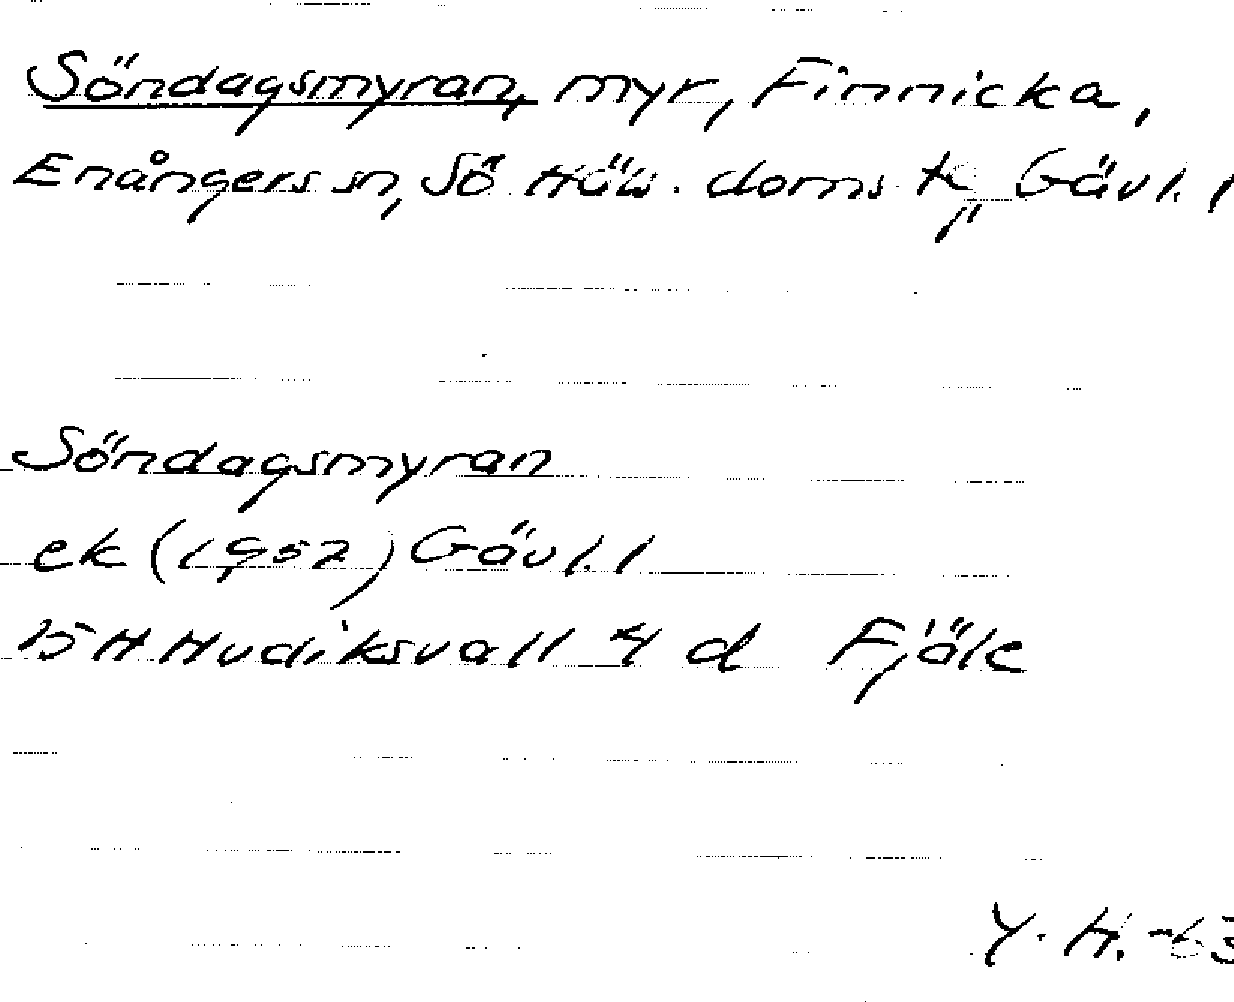 Söndagsmyran, myr, Finnicka,
Enångers sn, Sö Häls. doms k, Gävl. l
Söndagsmyran
ek (1952) Gävl. l
15 H Hudiksvall 4 d Fjäle
Y. H. -63